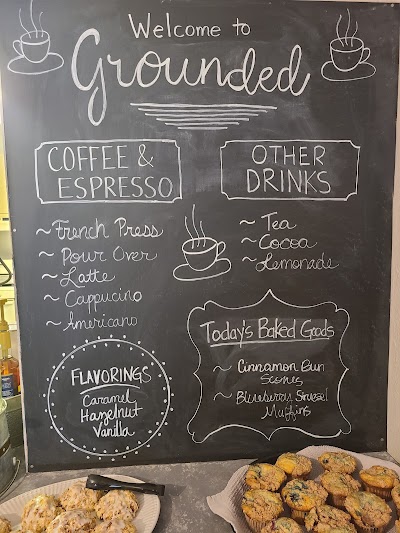 Welcome to
Grounded
COFFEE &
ESPRESSO
~ French Press
~ Pour Over
~ Latte
~ Cappucino
~ Americano
OTHER
DRINKS
~ Tea
~ Cocoa
~ Lemonade
FLAVORINGS
Caramel
Hazelnut
Vanilla
Today's Baked Goods
~ Cinnamon Bun
Scones
~ Blueberry Struesel
Muffins